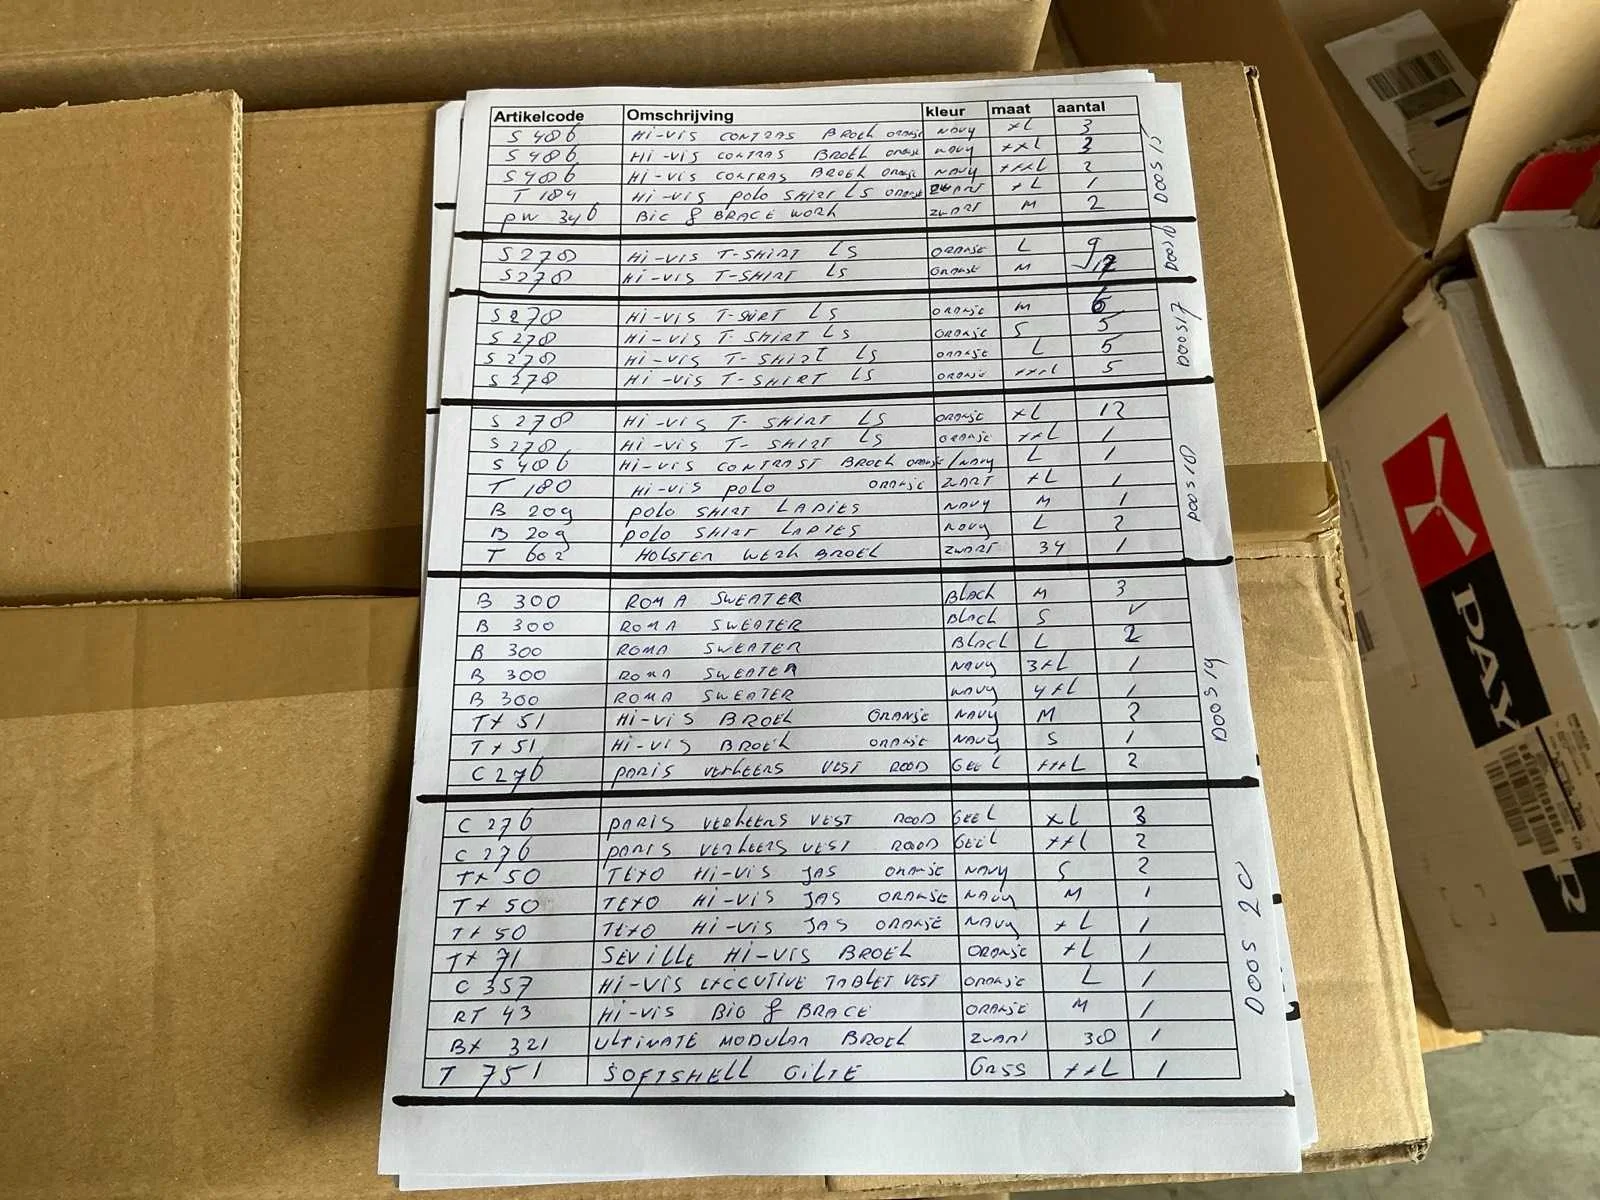 Artikelcode Omschrijving kleur maat aantal
S 486 Hi-Vis CONTRAS BROEK ORANJE NAVY XL 3
S 486 Hi-Vis CONTRAS BROEK ORANJE NAVY XXL 3
S 486 Hi-Vis CONTRAS BROEK ORANJE NAVY XXXL 2
T 184 Hi-Vis POLO SHIRT LS ORANJE ZWART XL 1
PW 346 BIC & BRACE WORK ZWART M 2
DOOS 15
S 278 Hi-Vis T-SHIRT LS ORANJE L 9
S 278 Hi-Vis T-SHIRT LS ORANJE M
DOOS 16
S 278 Hi-Vis T-SHIRT LS ORANJE M 6
S 278 Hi-Vis T-SHIRT LS ORANJE S 5
S 278 Hi-Vis T-SHIRT LS ORANJE L 5
S 278 Hi-Vis T-SHIRT LS ORANJE XXXL 5
DOOS 17
S 278 Hi-Vis T-SHIRT LS ORANJE XL 12
S 278 Hi-Vis T-SHIRT LS ORANJE XXL 1
S 486 Hi-Vis CONTRAST BROEK ORANJE/NAVY L 1
T 180 Hi-Vis POLO ORANJE ZWART XL 1
B 209 POLO SHIRT LADIES NAVY M 1
B 209 POLO SHIRT LADIES NAVY L 2
T 602 HOLSTER WERK BROEK ZWART 34 1
DOOS 18
B 300 ROMA SWEATER BLACK M 3
B 300 ROMA SWEATER BLACK S
B 300 ROMA SWEATER BLACK L 2
B 300 ROMA SWEATER NAVY 3XL 1
B 300 ROMA SWEATER NAVY 4XL 1
TX 51 Hi-Vis BROEK ORANJE NAVY M 2
TX 51 Hi-Vis BROEK ORANJE NAVY S 1
C 276 PARIS VERKEERS VEST ROOD GEEL XXXL 2
DOOS 19
C 276 PARIS VERKEERS VEST ROOD GEEL XL 3
C 276 PARIS VERKEERS VEST ROOD GEEL XXL 2
TX 50 TEXO Hi-Vis JAS ORANJE NAVY S 2
TX 50 TEXO Hi-Vis JAS ORANJE NAVY M 1
TX 50 TEXO Hi-Vis JAS ORANJE NAVY XL 1
TX 71 SEVILLE Hi-Vis BROEK ORANJE XL 1
C 357 Hi-Vis EXECUTIVE TABLET VEST ORANJE L 1
RT 43 Hi-Vis BIB & BRACE ORANJE M 1
BX 321 ULTIMATE MODULAR BROEK ZWART 38 1
T 751 SOFTSHELL GILTE XXL 1
DOOS 20